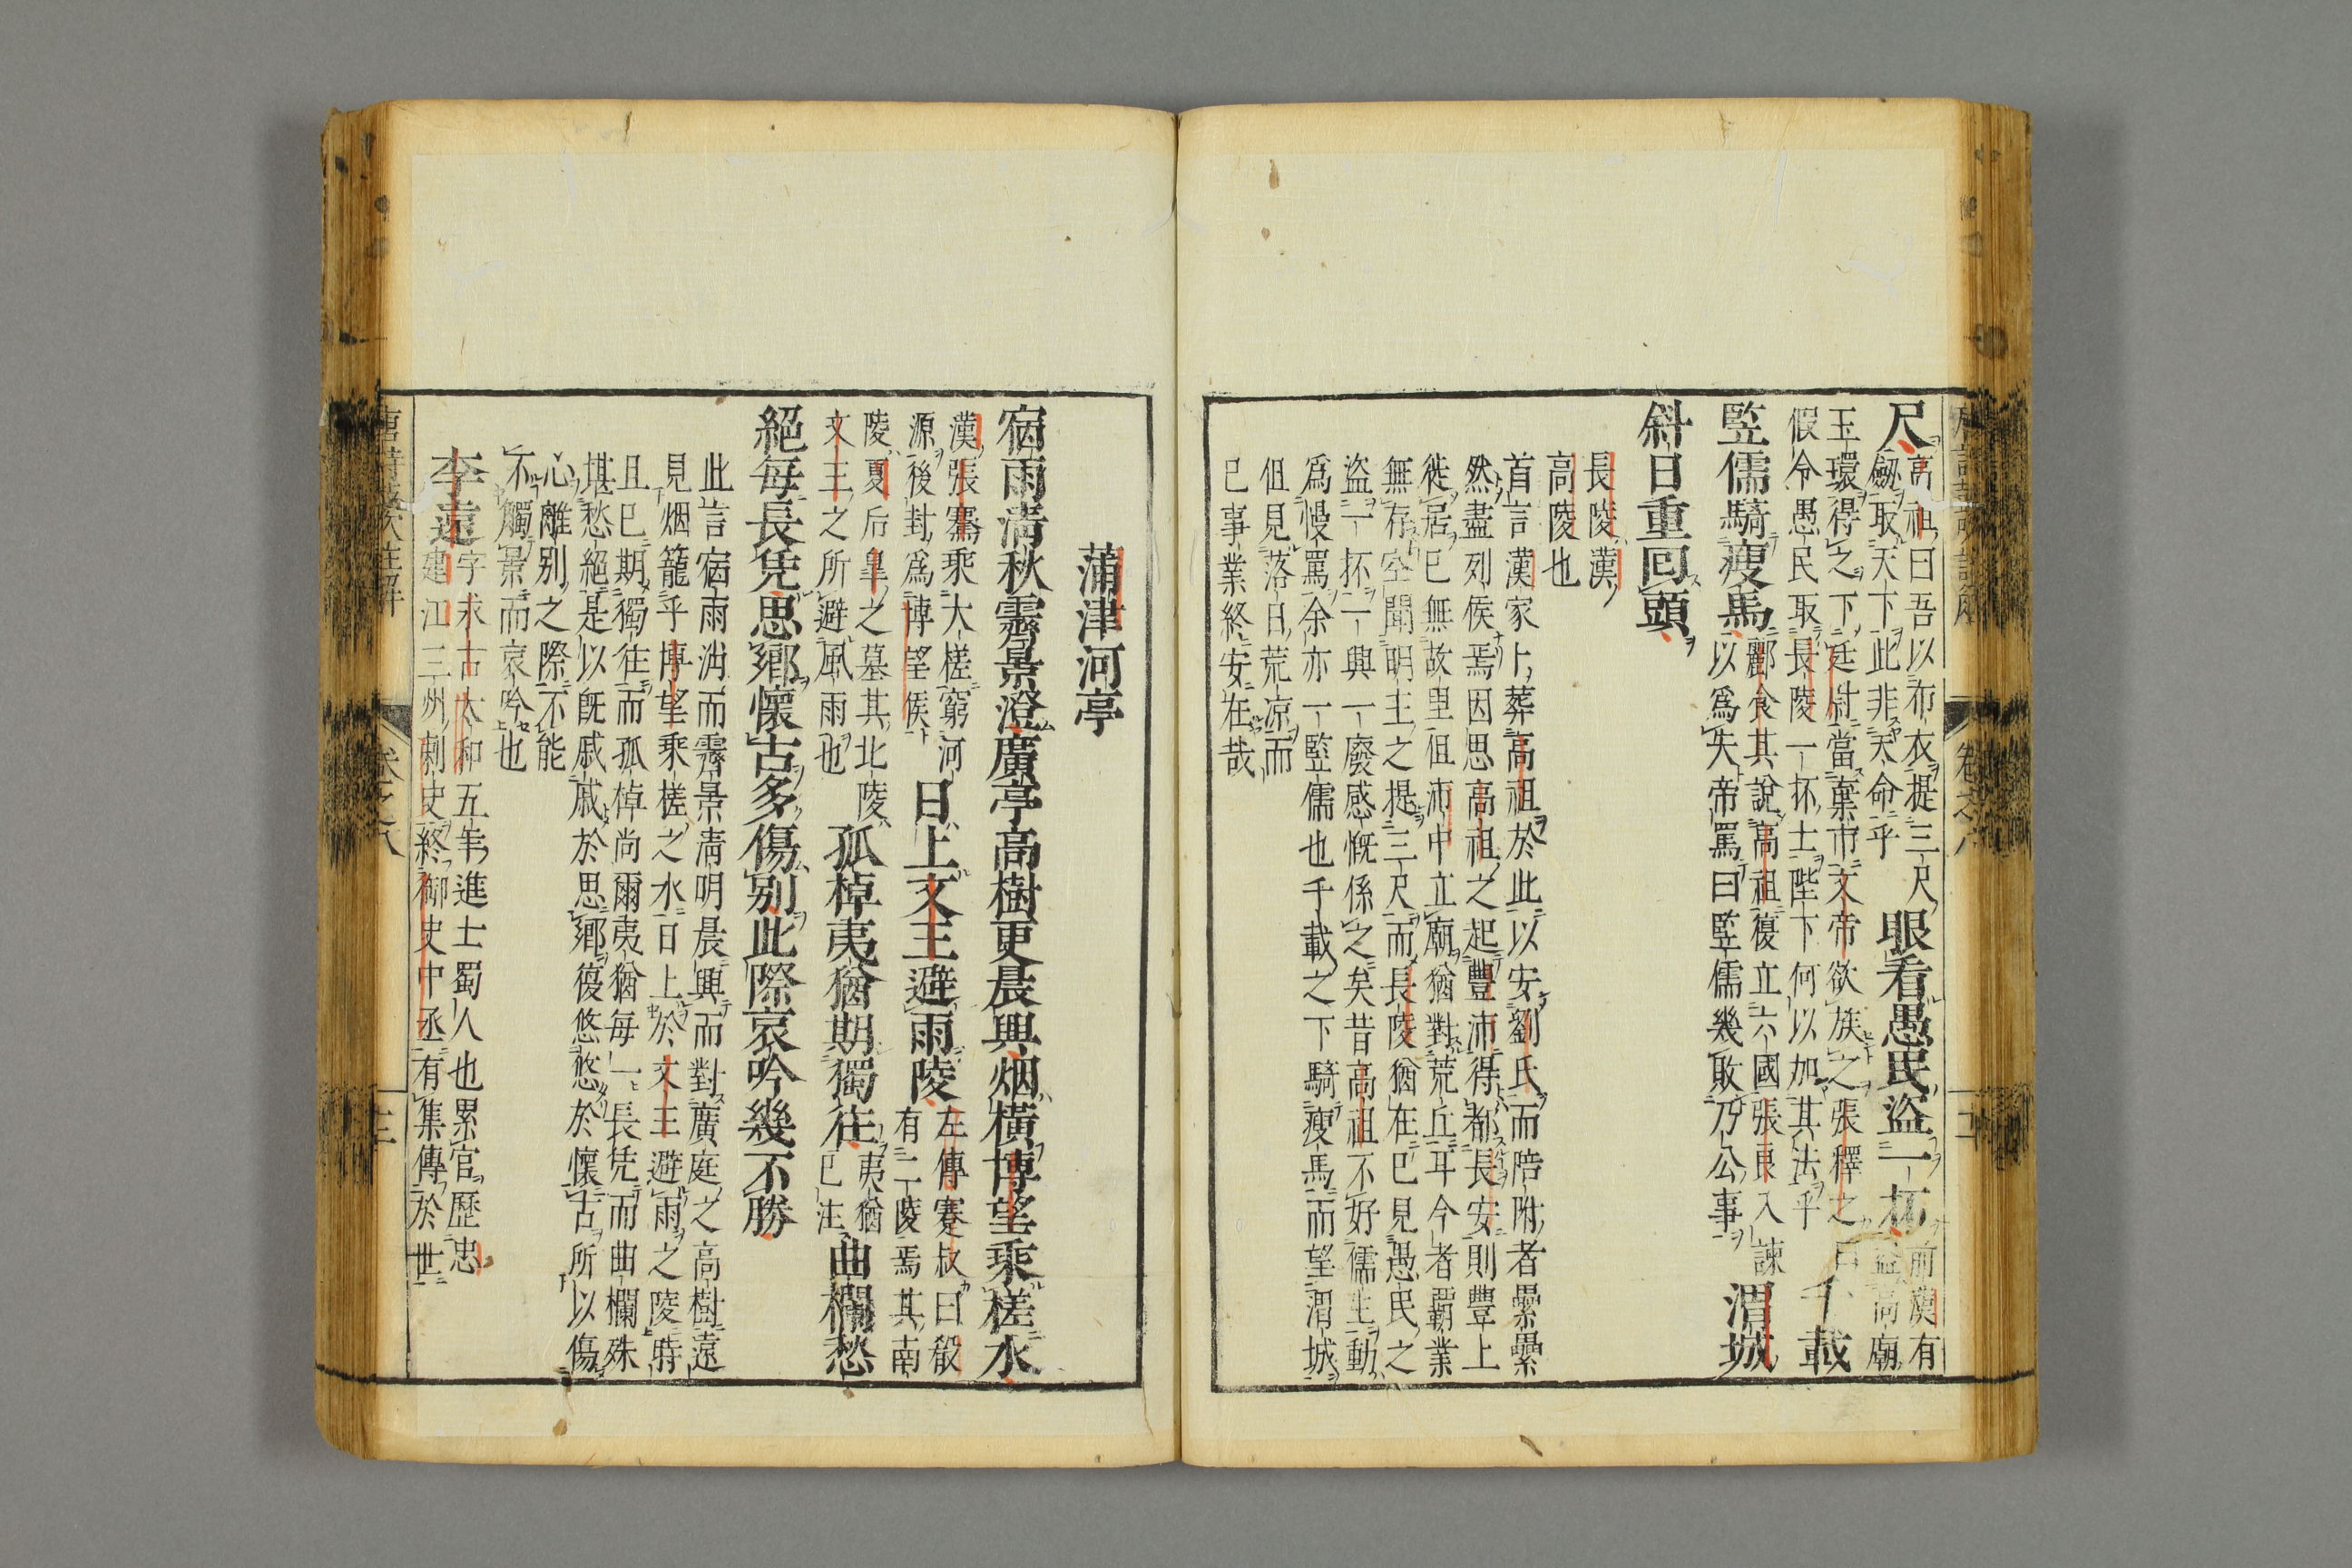 尺
高祖曰吾以布衣提三尺
劔取天下此非天命乎
眼看愚民盜一抔
前漢有
盜高廟
玉環得之下廷尉當棄市文帝欲族之張釋之曰
假令愚民取長陵一抔土陛下何以加其法乎
千載
竪儒騎瘦馬
酈食其說高祖復立六國張良入諫
以爲失帝罵曰竪儒幾敗乃公事
渭城
斜日重回頭
長陵漢
高陵也
首言漢家卜葬高祖於此以安劉氏而陪附者纍纍
然盡列侯焉因思高祖之起豐沛得都長安則豐上
徙居已無故里但沛中立廟猶對荒丘耳今者覇業
無存空聞明主之提三尺而長陵猶在已見愚民之
盜一抔一興一廢感慨係之矣昔高祖不好儒生動
爲慢罵余亦一竪儒也千載之下騎瘦馬而望渭城
但見落日荒凉而
已事業終安在哉
蒲津河亭
宿雨淸秋霽景澄廣亭高樹更晨興烟橫博望乘槎水
漢張騫乘大槎窮河
源後封爲博望侯
日上文王避雨陵
左傳蹇叔曰殽
有二陵焉其南
陵夏后皐之墓其北陵
文王之所避風雨也
孤棹夷猶期獨往
夷猶
已注
曲欄愁
絕每長凭思鄉懷古多傷別此際哀吟幾不勝
此言宿雨淸而霽景淸明晨興而對廣庭之高樹遠
見烟籠乎博望乘槎之水日上於文王避雨之陵時
且已期獨往而孤棹尚爾夷猶每一長凭而曲欄殊
堪愁絕是以旣戚戚於思鄉復悠悠於懷古所以傷
心離别之際不能
不觸景而哀吟也
李遠
字求古太和五年進士蜀人也累官歷忠
建江三州刺史終御史中丞有集傳於世
卷之六